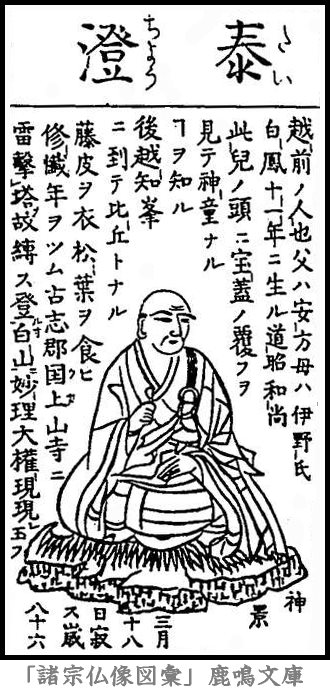 泰澄
たいちよう
越前ノ人也父ハ安方母ハ伊野氏
白鳳十一年ニ生ル道昭和尚
此兒ノ頭ニ宝蓋ノ覆フヲ
見テ神童ナル
ヿヲ知ル
後越知峯
ニ到テ比丘トナル
藤皮ヲ衣松葉ヲ食ヒ
修懺年ヲツム古志郡国上山寺ニ
雷撃塔ヲ故縛ス登白山ニ妙理大權現現レ玉フ
神
景
三月
十八
日寂
ス歳
八十六
「諸宗仏像図彙」鹿鳴文庫